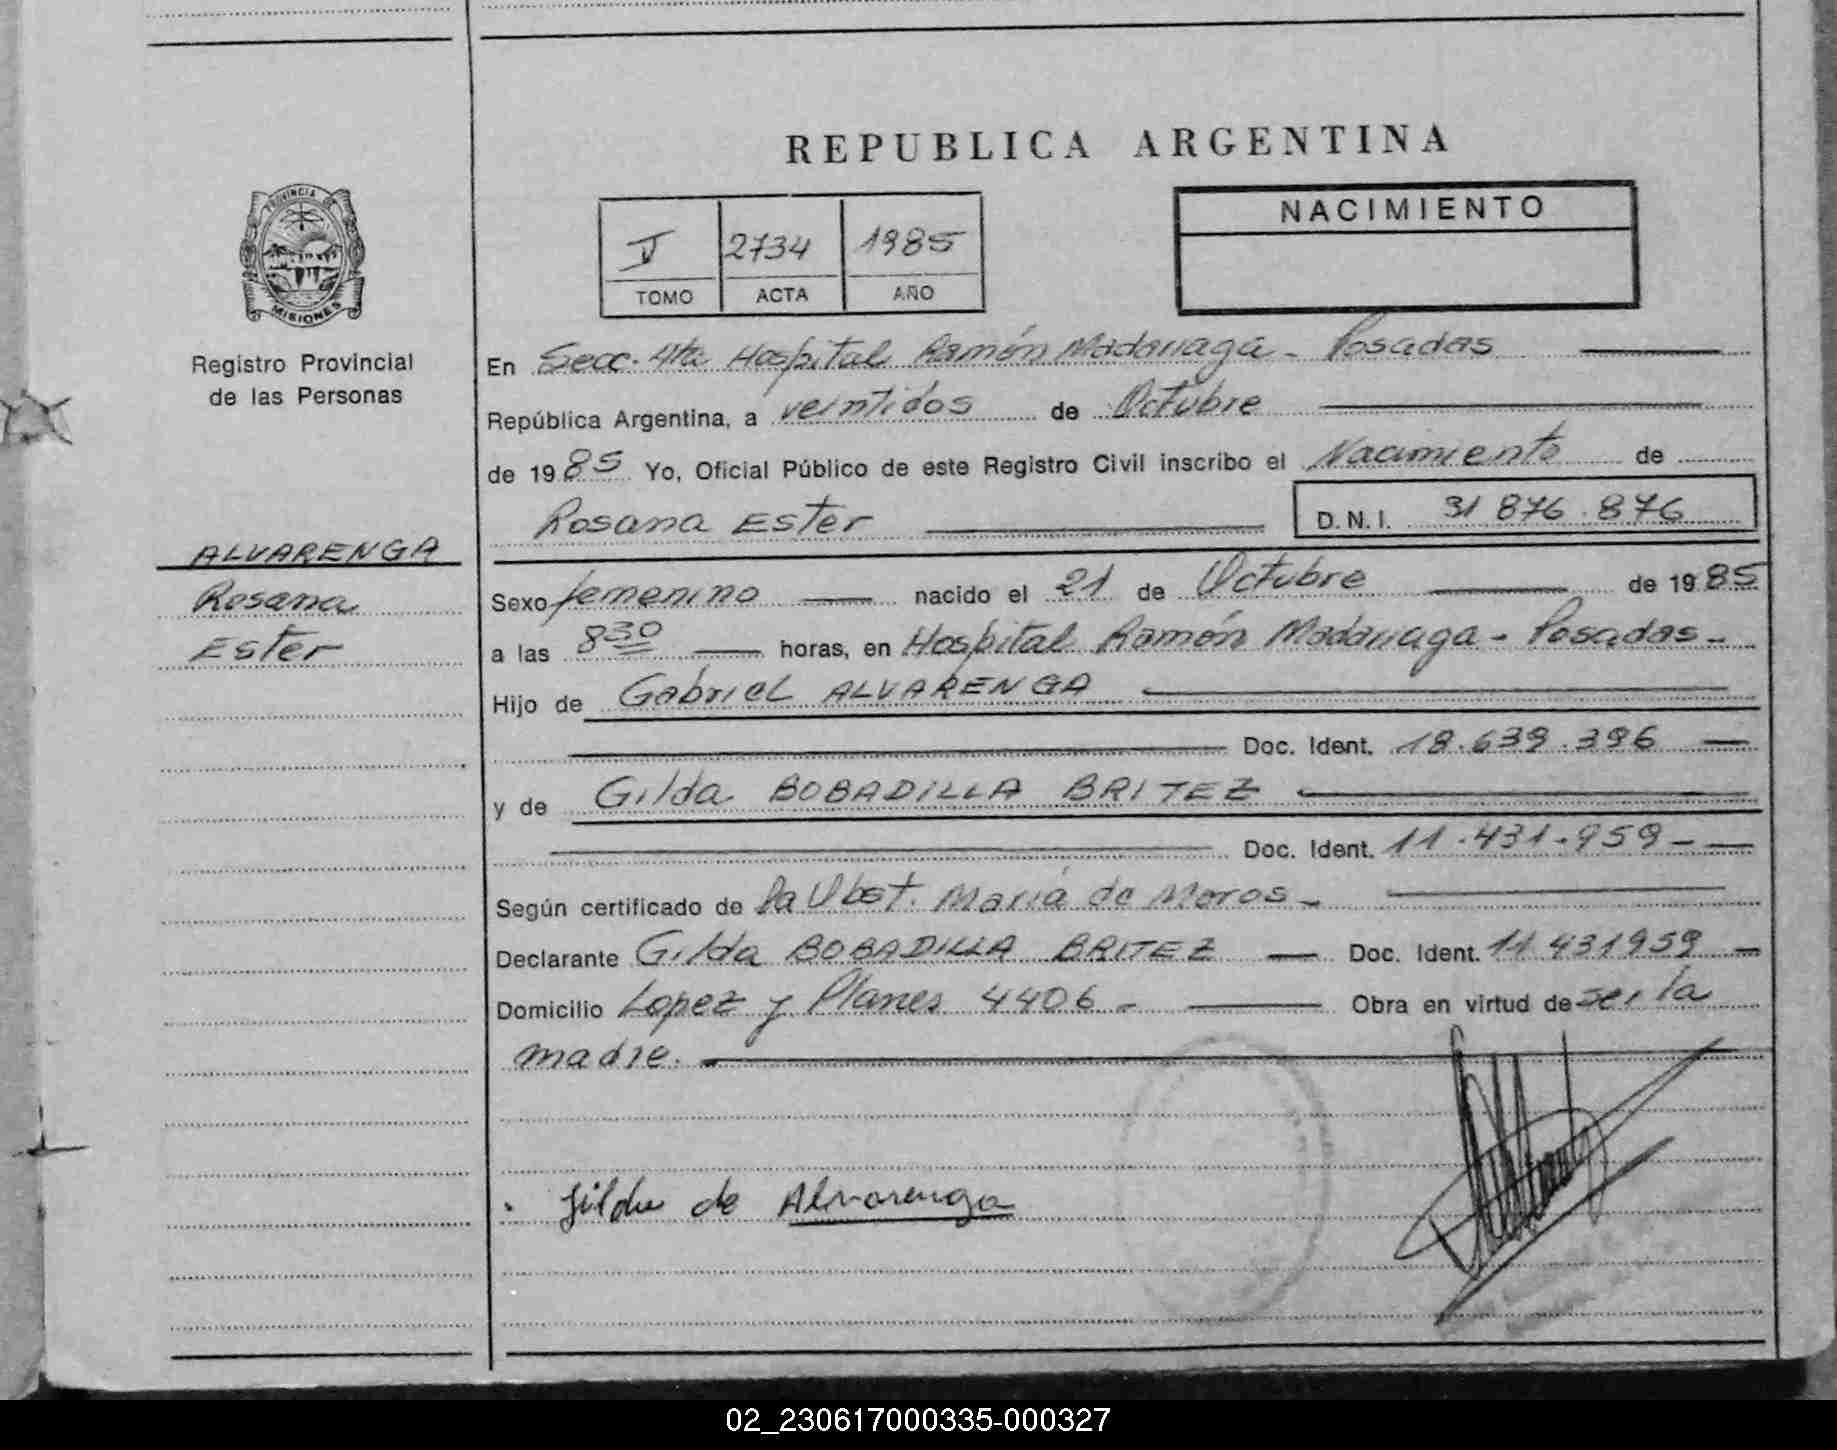 REPUBLICA ARGENTINA
PROVINCIA DE
MISIONES
Registro Provincial
de las Personas
V 2734 1985
TOMO ACTA AÑO
NACIMIENTO
En Secc. 4ta Hospital Ramón Madariaga - Posadas
República Argentina, a veintidos de Octubre
de 1985 Yo, Oficial Público de este Registro Civil inscribo el Nacimiento de
Rosana Ester D.N.I. 31 876.876
ALVARENGA
Rosana
Ester
Sexo femenino nacido el 21 de Octubre de 1985
a las 8 30 horas, en Hospital Ramón Madariaga - Posadas -
Hijo de Gabriel ALVARENGA
Doc. Ident. 18.639.396
y de Gilda BOBADILLA BRITEZ
Doc. Ident. 11.431.959 -
Según certificado de La Obst. María de Moros -
Declarante Gilda BOBADILLA BRITEZ Doc. Ident. 11.431959
Domicilio Lopez y Planes 4406 - Obra en virtud de ser la
madre.
Gilda de Alvarenga
02_230617000335-000327